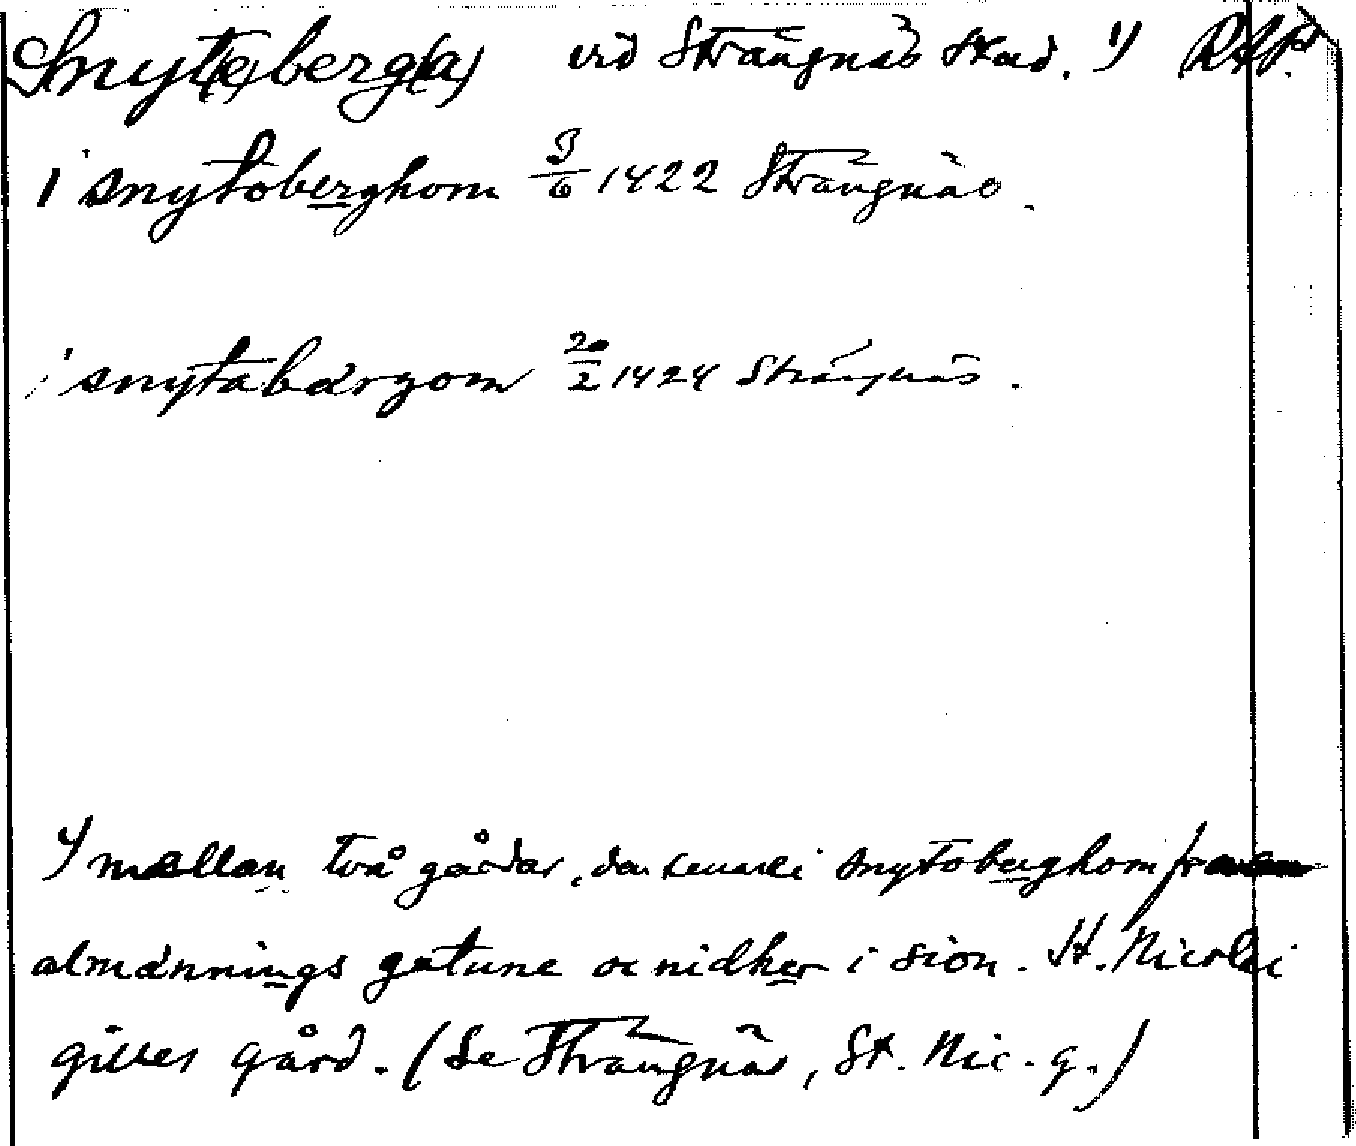 Snyt(e)berg(a) vid Strängnäs stad. 1) RAP.
i snytoberghom 9/6 1422 Strängnäs.
i snytabärgom 20/2 1424 Strängnäs.
mellan två gårdar, i snytoberghom fra
almännings gatune oc nidher i sion. St. Nicolai
gilles gård. (Se Strängnäs, St. Nic. g.)